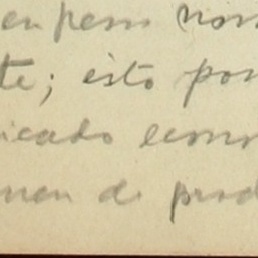 en pero nos
te; esto por
icado econo
men de prod